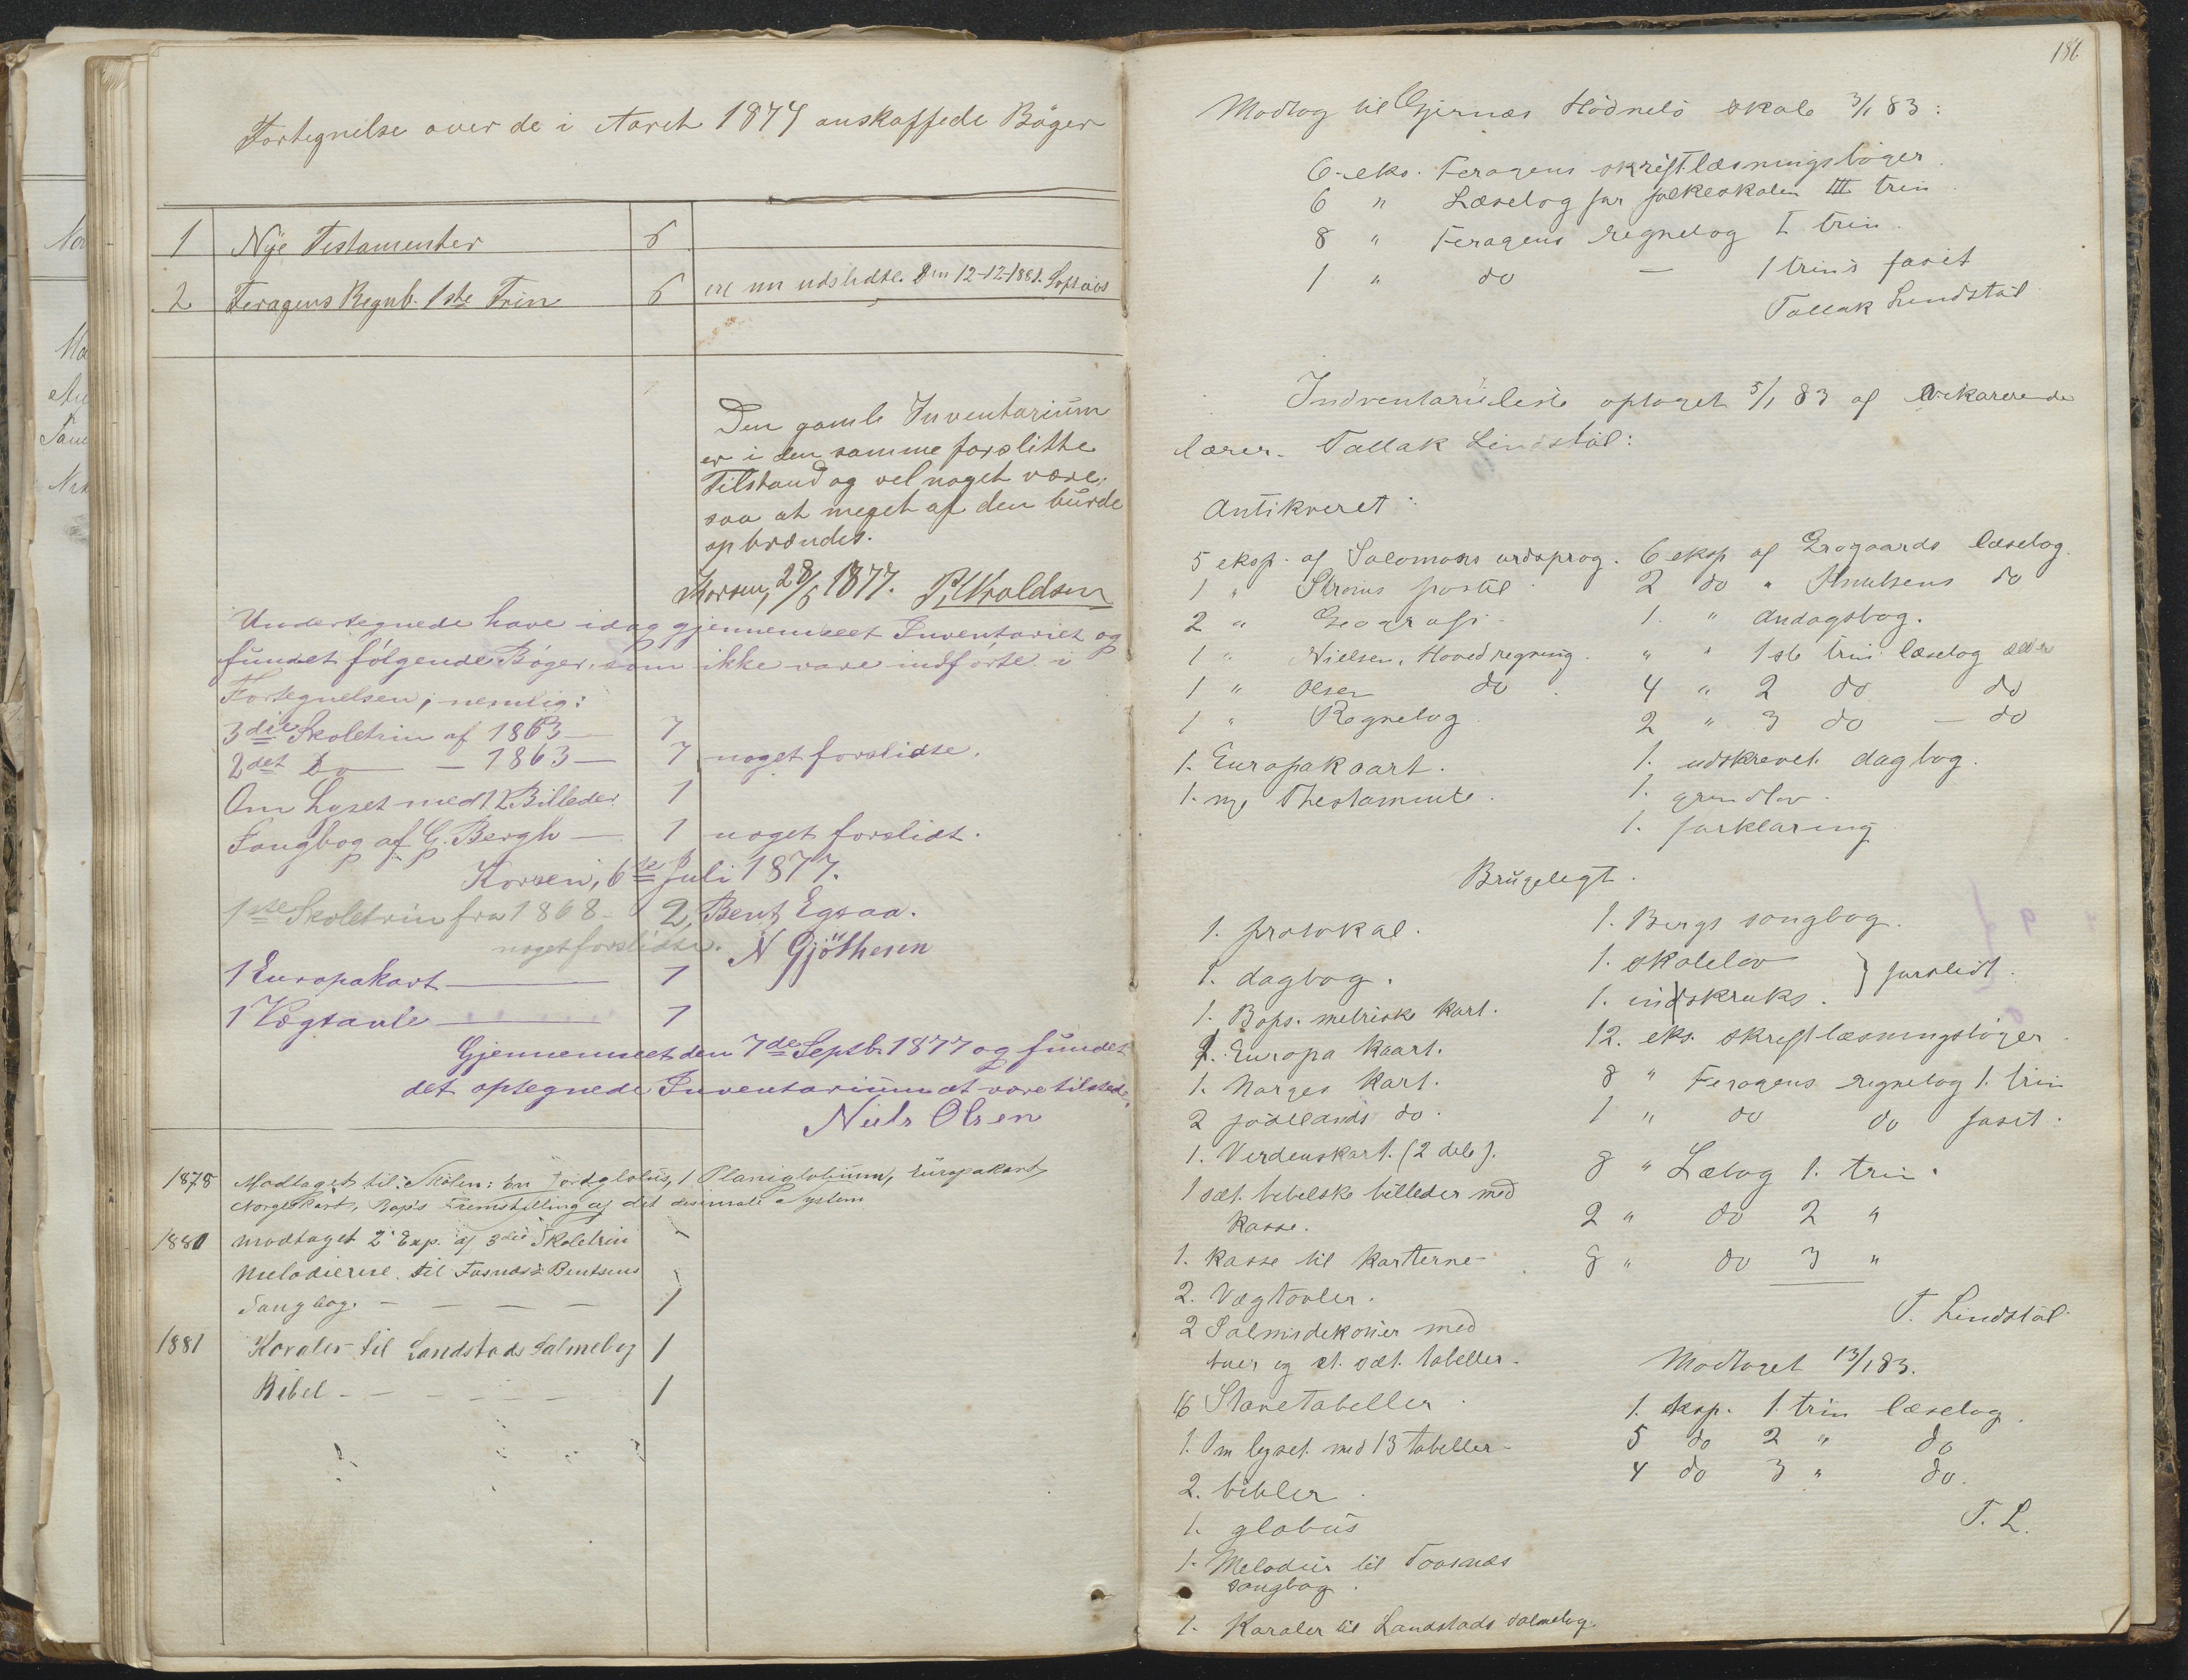 Fortegnilse over de i Aaret 1874 anskaffede Böger
1 Nye Testamenter 6
2 Feragens Regnb. 1ste Trin 6 ere nu udslidte. Den 12-12-1881.
Den gamle Inventarium
er i den samme forslitte
Tilstand og vel noget være,
saa at meget af den burde
opbrændes.
Korsen, 28/6 1877.
Undertegnede have idag gjennemseet Inventariet og
fundet fölgende Böger, som ikke vare indförte i
Fortegnelsen, nemlig:
3die Skoletrin af 1863 — 7
2det Do — 1863 — 7 noget forslidte.
Om Lyset med 12 Billeder 1
Sangbog af G. Bergh — 1 noget forslidt.
Korsen, 6te Juli 1877.
1ste Skoletrin fra 1868 - 2, Bent Egsaa.
noget forslidte. N Gjöthesen
1 Europakart — 1
1 Vægtavle — 1
Gjennemseet den 7de Septb. 1877 og fundet
det optegnede Inventarium at være tilstede.
Niels Olsen
1878 Modtaget til Skolen: En Jordglobus, 1 Planiglobium, Europakart,
Norgeskart, Bap's Fremstilling af det desimale System
1880 modtaget 2 Exp. af 3die Skoletrin
Melodierne til Fosnæs's Bentsens
Sangbog. — — — — 1
1881 Koraler til Landstads Salmebog 1
Bibel - — — — — 1
186
Modtog til Gjernæs Hödnebö skole 3/1 83:
6 eks. Feragens skriftlæsningsböger.
6 " Læsebog for folkeskolen III trin
8 " Feragens regnebog I trin.
1 " do — 1 trins fasit
Tallak Lindstöl
Indventarieliste optaget 5/1 83 af vikarerende
lærer. Tallak Lindstöl:
Antikveret:
5 eksp. af Salomons ordsprog. 6 eksp. af Grogaards læsebog.
1 " postil 2 do " Knudsens do
2 " Geografi - 1. " Andagtsbog.
1 " Nielsen, Hovedregning. " " 1ste trin læsebog ældre
1 " Olsen do. 4 " 2 do do
1 " Regnebog 2 " 3 do — do
1. Europakaart. 1. udskrevet dagbog.
1. nye Thestamente. 1. grundlov.
1. forklaring
Brugeligt.
1. protokal. 1. Bergs sangbog.
1. dagbog. 1. skolelov } forslidt.
1. Bops. metriske kart. 1. indskruks.
1. Europa kaart. 12. eks. skriftlæsningsböger
1. Norges kart. 8 " Feragens regnebog 1. trin
2 jödelands do. 1 " do do fasit.
1. Verdenskart. (2 dele). 8 " Læbog 1. trin.
1 sæt. bibelske billeder med
kasse. 2 " do 2 "
1. kasse til karterne 8 " do 3 "
2. Vægtavler.
T. Lindstöl
2 Salmodekoner med
buer og et. sæt. tabeller. Modtaget 13/1 83.
16 Stavetabeller. 1. eksp. 1. trin læsebog.
1. Om lyset med 13 tabeller- 5 do 2 " do
2. bibler. 4 do 3 " do.
1. globus T. L.
1. Melodier til Toosnæs
sangbog.
1. Koraler til Landstads salmebog.